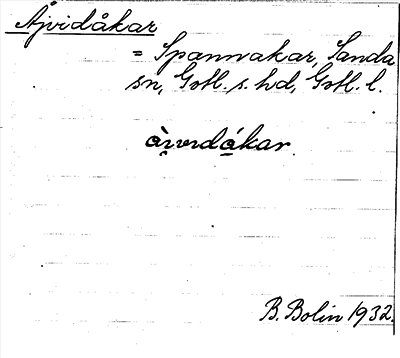 Åjvidåkar
= Spannvakar, Sanda
sn, Gotl. s. hd, Gotl. l.
àı̯vıdá̱kar.
B. Bolin 1932.